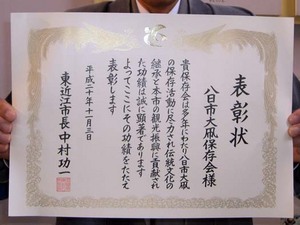 表彰状
八日市大凧保存会様
貴保存会は多年にわたり八日市大凧
の保存活動に尽力され伝統文化の
継承と本市の観光振興に貢献され
た功績は誠に顕著であります
よってここにその功績をたたえ
表彰します
平成二十年十一月三日
東近江市長 中村功一